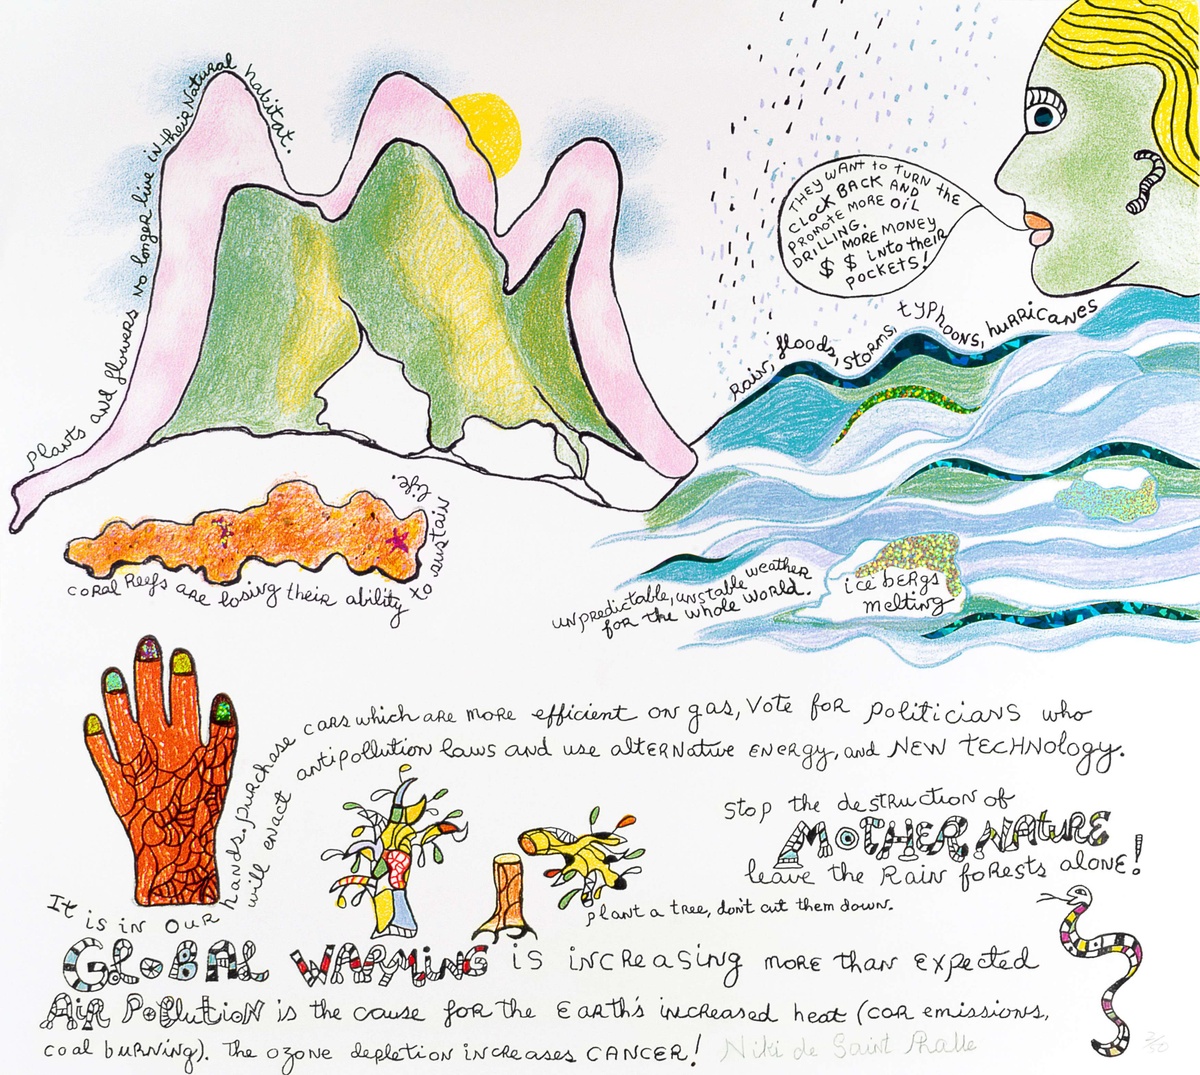 Plants and flowers no longer live in their Natural habitat.
THEY WANT to TURN the
CLOCK BACK AND
PROMOTE MORE OIL
DRILLING.
MORE MONEY
$ $ INto their
POCKETS!
Rain, floods, storms, typhoons, hurricanes
coral Reefs are losing their ability to sustain life.
unpredictable, unstable weather
for the whole world.
ice bergs
melting
It is in our hands. purchase cars which are more efficient on gas, Vote for politicians who
will enact antipollution laws and use alternative energy, and NEW TECHNOLOGY.
Stop the destruction of
MOTHER NATURE
leave the Rain forests alone!
plant a tree, don't cut them down.
GLOBAL WARMING is increasing more than expected
AIR POLLUTION is the cause for the Earth's increased heat (car emissions,
coal burning). The ozone depletion increases CANCER! Niki de Saint Phalle